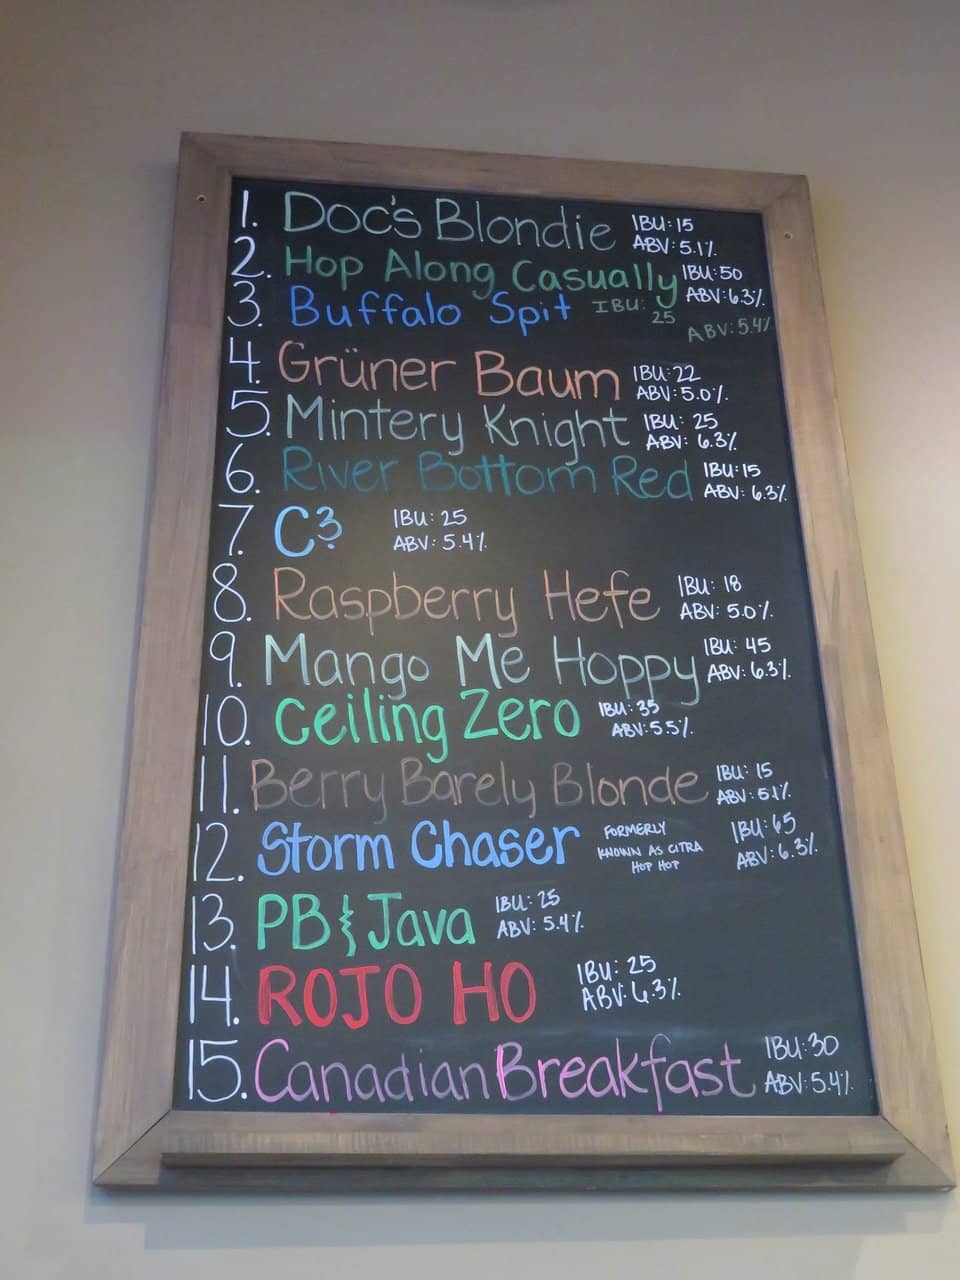 1. Doc's Blondie IBU: 15
ABV: 5.1%
2. Hop Along Casually IBU: 50
ABV: 6.3%
3. Buffalo Spit IBU: 25
ABV: 5.4%
4. Grüner Baum IBU: 22
ABV: 5.0%
5. Mintery Knight IBU: 25
ABV: 6.3%
6. River Bottom Red IBU: 15
ABV: 6.3%
7. C3 IBU: 25
ABV: 5.4%
8. Raspberry Hefe IBU: 18
ABV: 5.0%
9. Mango Me Hoppy IBU: 45
ABV: 6.3%
10. Ceiling Zero IBU: 35
ABV: 5.5%
11. Berry Barely Blonde IBU: 15
ABV: 5.1%
12. Storm Chaser FORMERLY KNOWN AS CITRA HOP HOP IBU: 65
ABV: 6.3%
13. PB & Java IBU: 25
ABV: 5.4%
14. ROJO HO IBU: 25
ABV: 6.3%
15. Canadian Breakfast IBU: 30
ABV: 5.4%